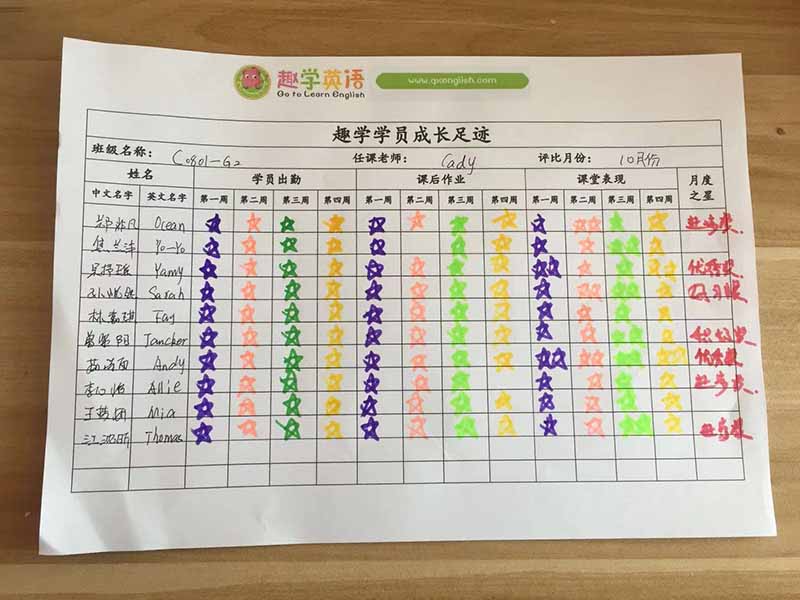 趣学英语
Go to Learn English
www.qxenglish.com
趣学学员成长足迹
班级名称： C0801-G2 任课老师： Cady 评比月份： 10月份
姓名 学员出勤 课后作业 课堂表现 月度之星
中文名字 英文名字 第一周 第二周 第三周 第四周 第一周 第二周 第三周 第四周 第一周 第二周 第三周 第四周
Ocean 进步奖
Yo-Yo
Yamy 优秀奖
Sarah
林 Fay
Tancker 积极奖
Andy 优秀奖
李 Allie 进步奖
王 Mia
江 Thomas 进步奖